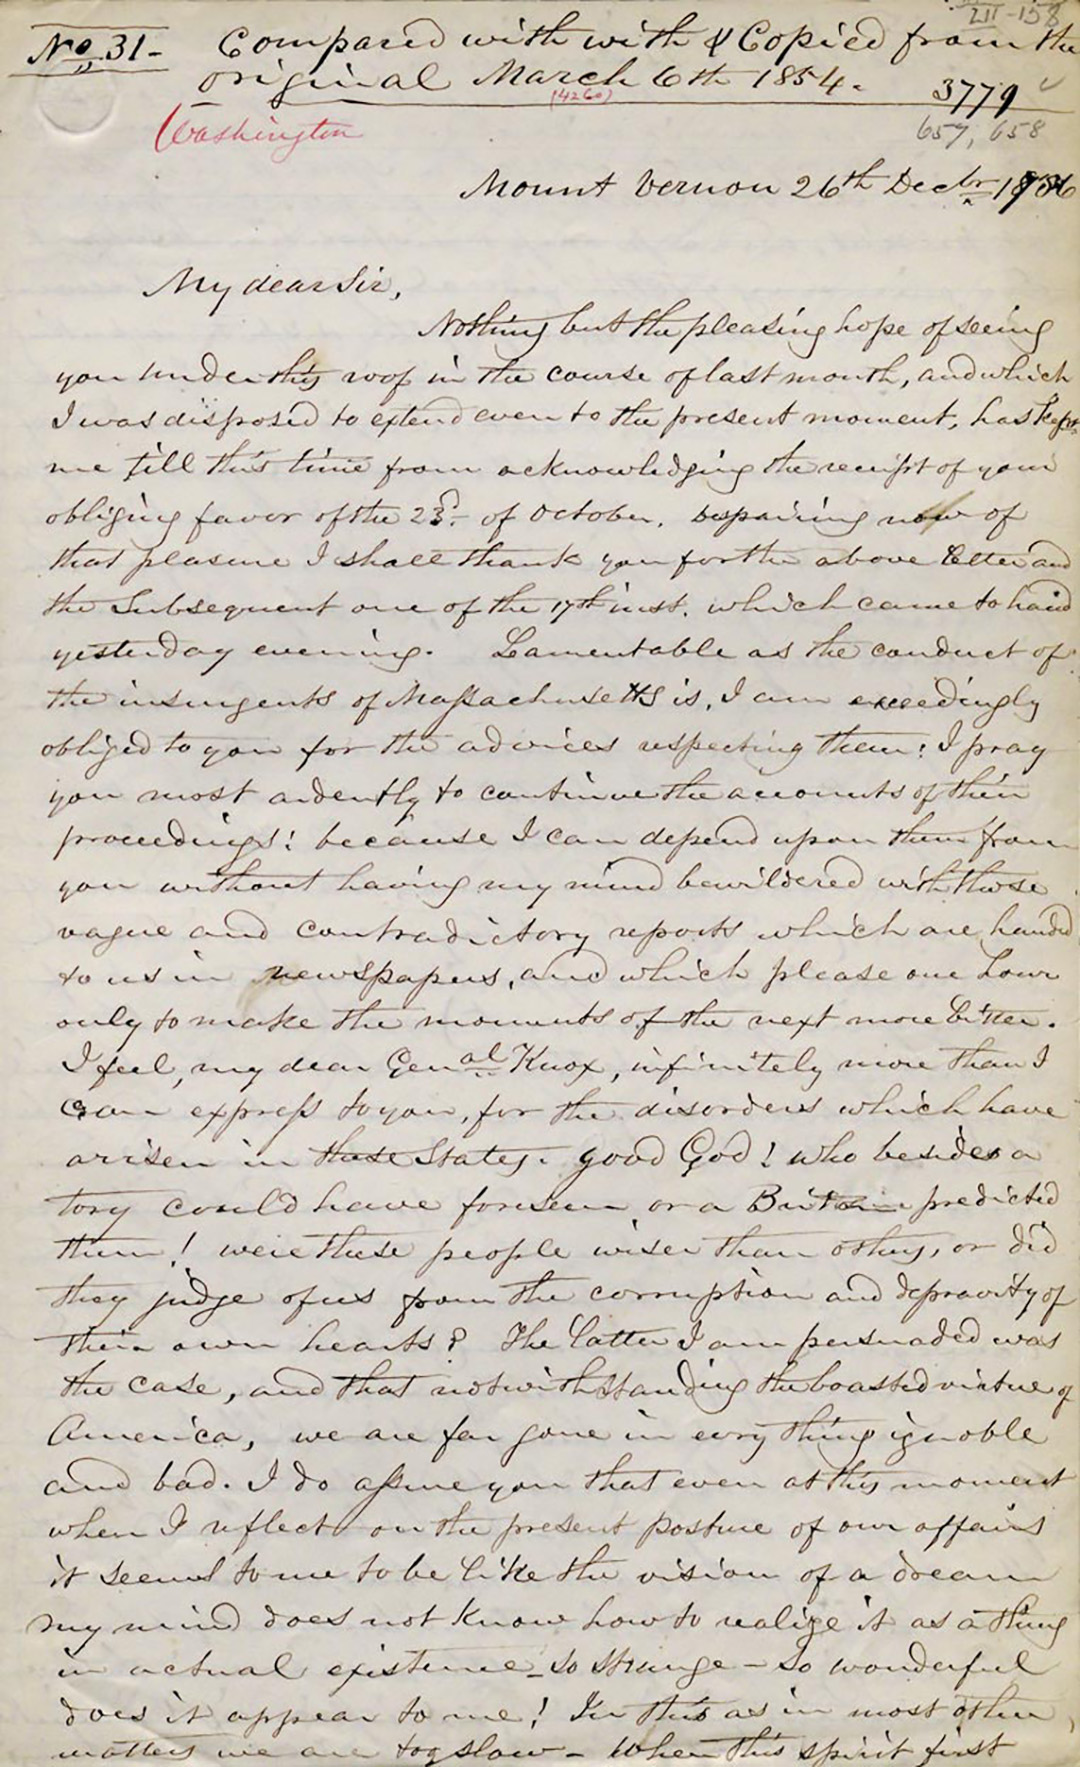 211-158
No. 31- Compared with with & Copied from the
original March 6th 1854.
(4260)
3779
Washington
657, 658
Mount Vernon 26th Decbr 1786
My dear Sir,
Nothing but the pleasing hope of seeing
you under this roof in the course of last month, and which
I was disposed to extend even to the present moment, has kept
me till this time from acknowledging the receipt of your
obliging favor of the 23d. of October. Despairing now of
that pleasure I shall thank you for the above letter and
the Subsequent one of the 17th inst. which came to hand
yesterday evening. Lamentable as the conduct of
the insurgents of Massachusetts is, I am exceedingly
obliged to you for the advices respecting them; I pray
you most ardently to continue the accounts of their
proceedings: because I can depend upon them from
you without having my mind bewildered with those
vague and contradictory reports which are handed
to us in newspapers, and which please one hour
only to make the moments of the next more bitter.
I feel, my dear Genal Knox, infinitely more than I
can express to you, for the disorders which have
arisen in these States. good God! who besides a
tory could have foreseen or a Briton predicted
them! were these people wiser than others, or did
they judge of us from the corruption and depravity of
their own hearts? The latter I am persuaded was
the case, and that notwithstanding the boasted virtue of
America, we are far gone in every thing ignoble
and bad. I do assure you that even at this moment
when I reflect on the present posture of our affairs
it seems to me to be like the vision of a dream
my mind does not know how to realize it as a thing
in actual existence - so strange - so wonderful
does it appear to me! In this as in most other
matters we are too slow - When this spirit first